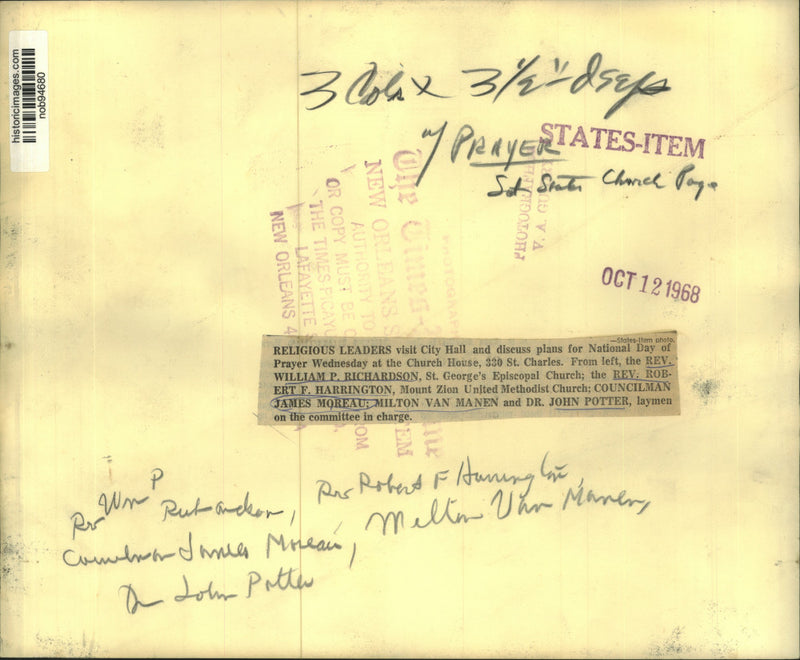 historicimages.com
nob94680
3 Cols x 3 1/2" deep
w/ PRAYER
STATES-ITEM
Sat States Church Page
PHOTOGRAPH
The Times-
NEW ORLEANS S
AUTHORITY TO
OR COPY MUST BE
THE TIMES-PICAYU
LAFAYETTE
NEW ORLEANS
OCT 12 1968
—States-Item photo.
RELIGIOUS LEADERS visit City Hall and discuss plans for National Day of
Prayer Wednesday at the Church House, 330 St. Charles. From left, the REV.
WILLIAM P. RICHARDSON, St. George's Episcopal Church; the REV. ROB-
ERT F. HARRINGTON, Mount Zion United Methodist Church; COUNCILMAN
JAMES MOREAU; MILTON VAN MANEN and DR. JOHN POTTER, laymen
on the committee in charge.
Rev Wm P Richardson, Rev Robert F Harrington,
Councilman James Moreau, Milton Van Manen,
Dr John Potter